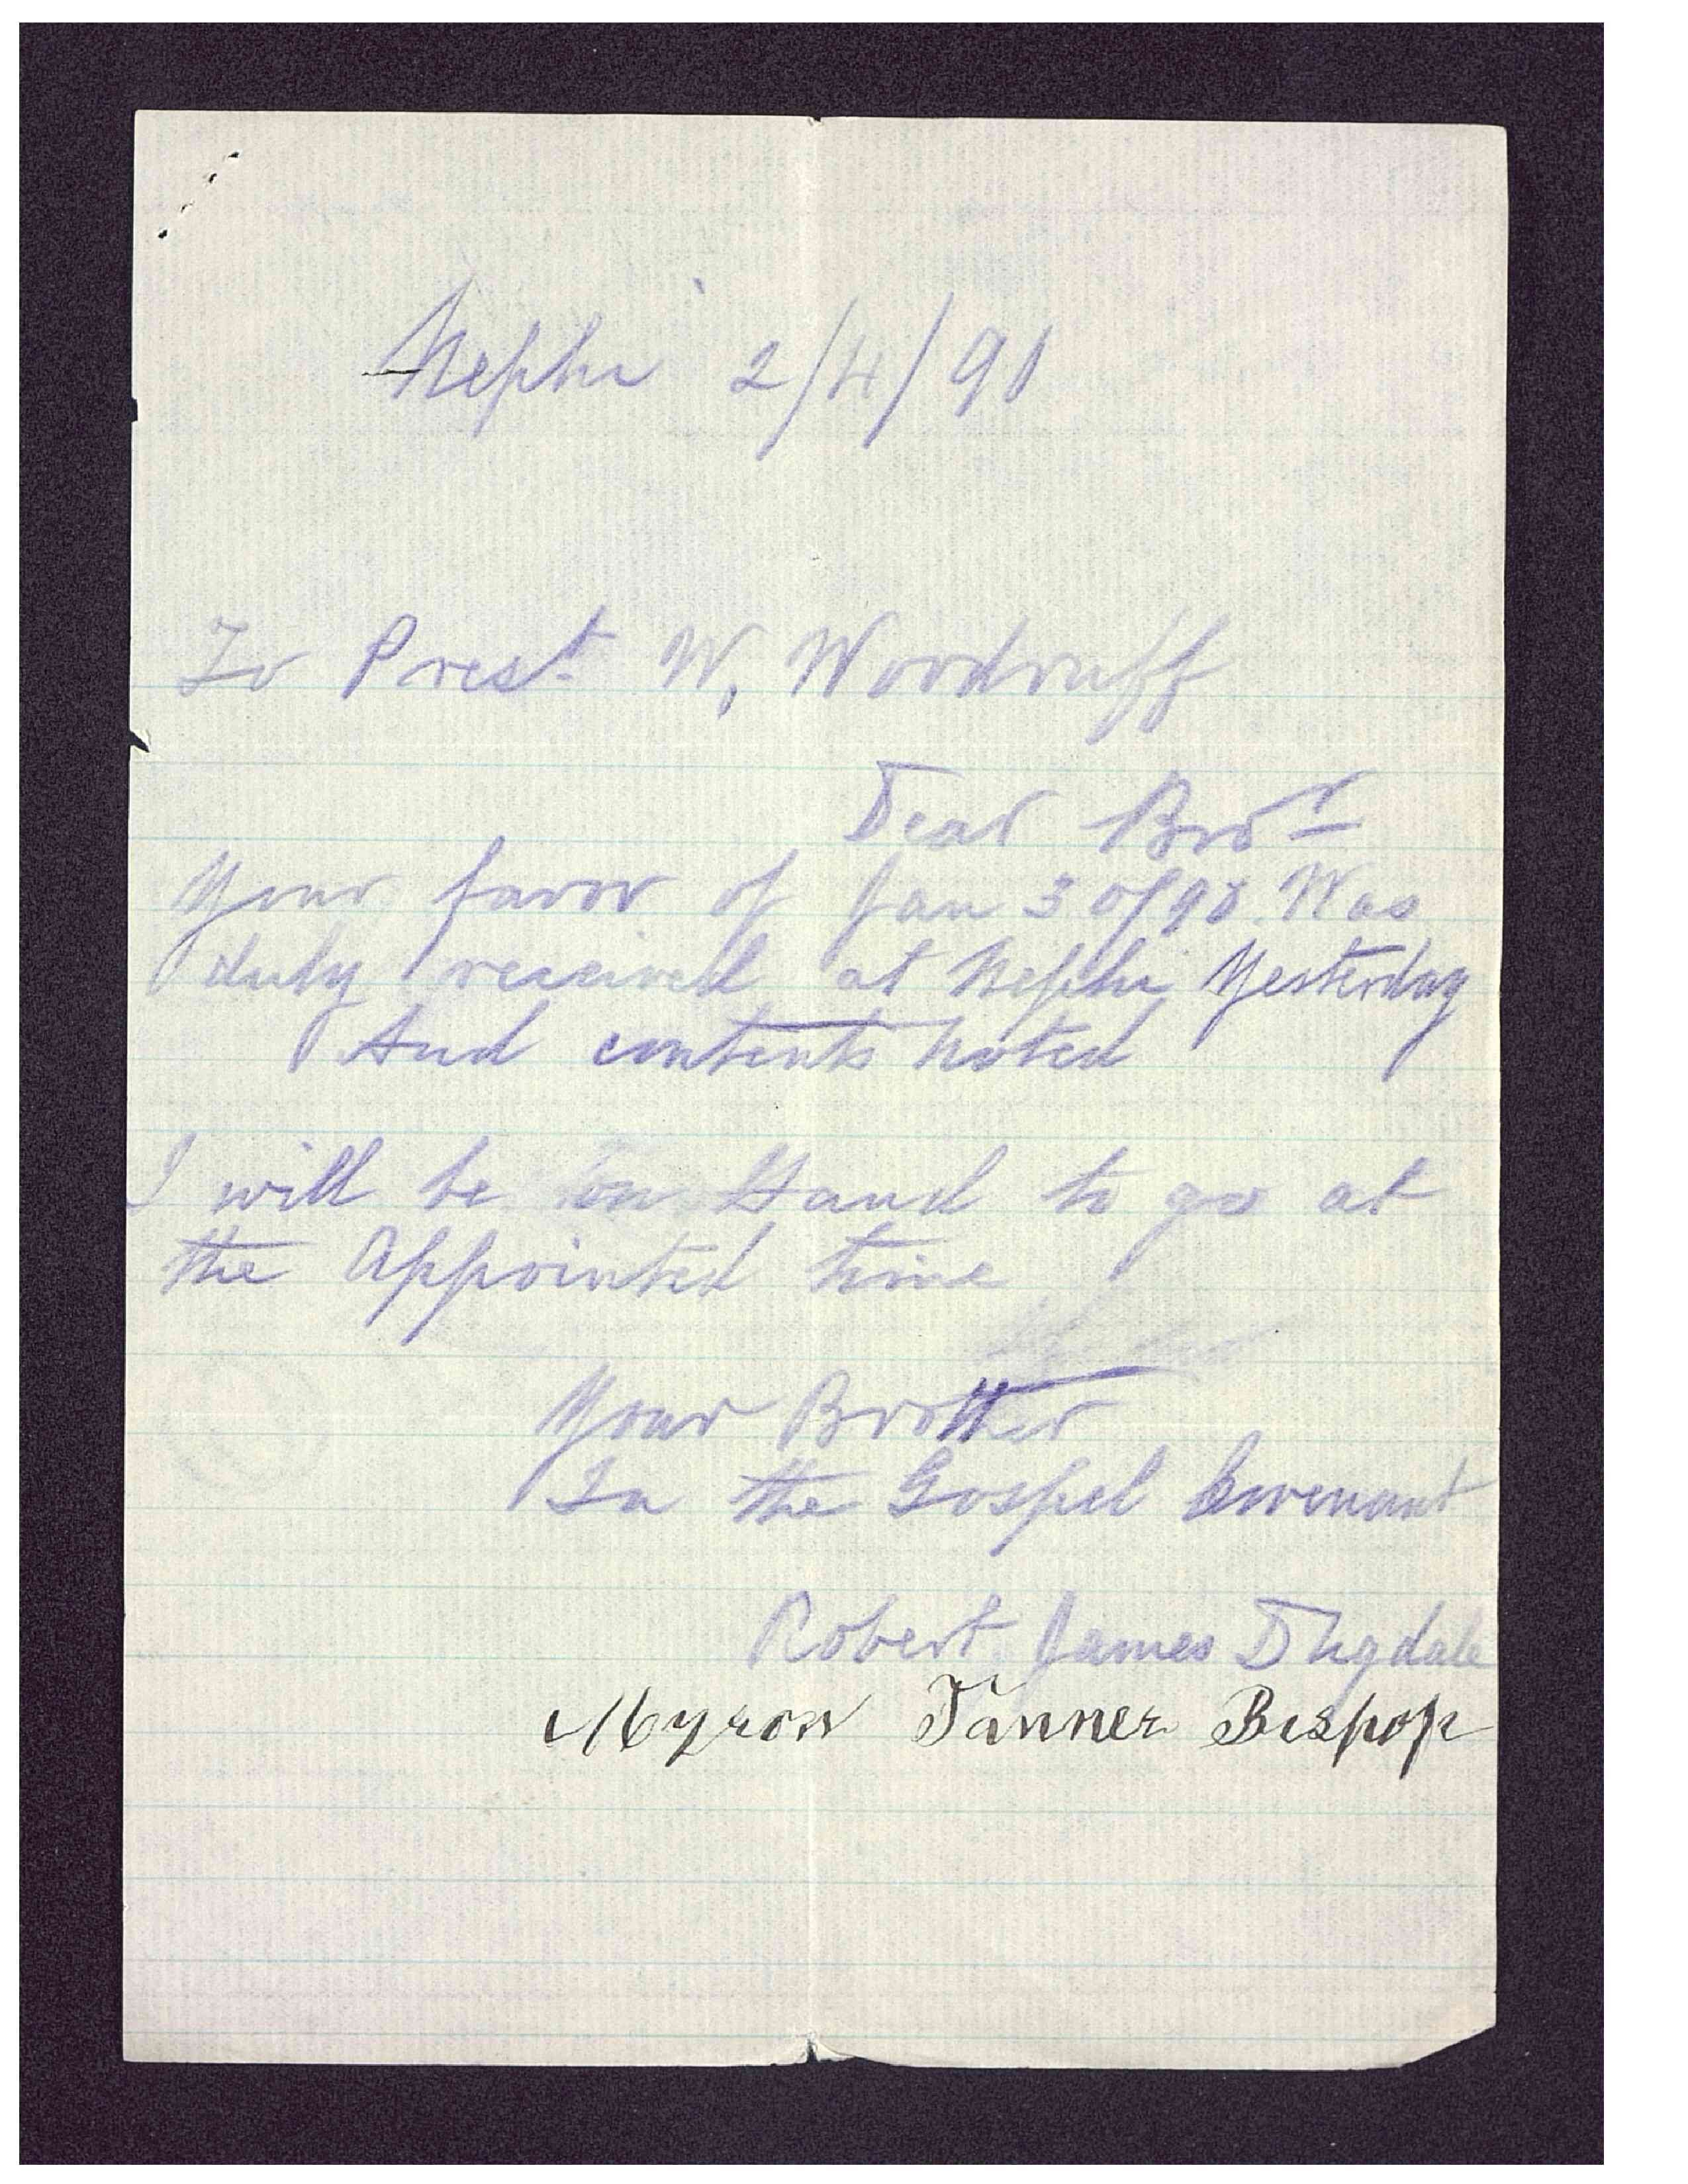 Nephi 2/4/91
To Prest. W, Woodruff
Dear Bror
Your favor of Jan 30/90. Was
duly received at Nephi Yesterday
And contents Noted
I will be on Hand to go at
the Appointed time
Your Brother
In the Gospel Covenant
Robert. James Dugdale
Myron Tanner Bishop